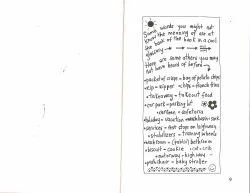 Some words you might not
know the meaning of are at
the back of the book in a cool
glossary
Here are some others you may
not have heard of before
• packet of crisps = bag of potato chips
• zip = zipper • chips = french fries
• takeaway = takeout food
• car park = parking lot
• canteen = cafeteria
• holiday = vacation
• services = rest stop on highway
• stabilizers = training wheels
• washroom = (public) bathroom
• biscuit = cookie • cot = crib
• motorway = highway
• pushchair = baby stroller